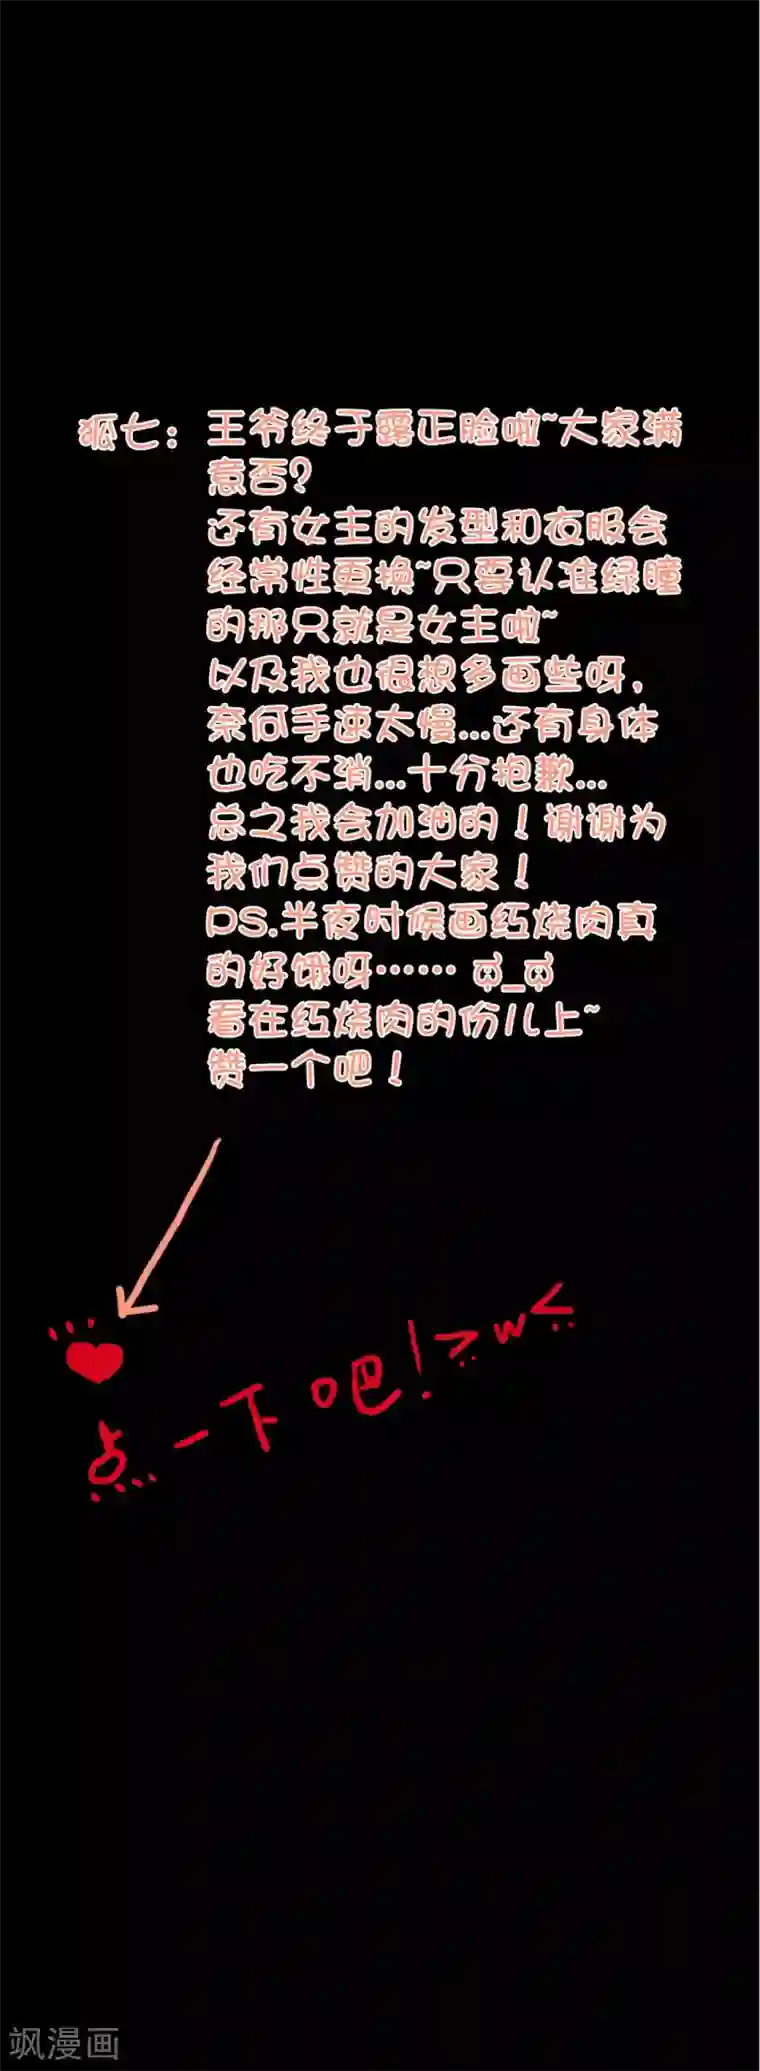 狐七：王爷终于露正脸啦~大家满
意否？
还有女主的发型和衣服会
经常性更换~只要认准绿瞳
的那只就是女主啦~
以及我也很想多画些呀，
奈何手速太慢...还有身体
也吃不消...十分抱歉...
总之我会加油的！谢谢为
我们点赞的大家！
PS.半夜时候画红烧肉真
的好饿呀…… ಥ_ಥ
看在红烧肉的份儿上~
赞一个吧！
点一下吧！>w<
飒漫画